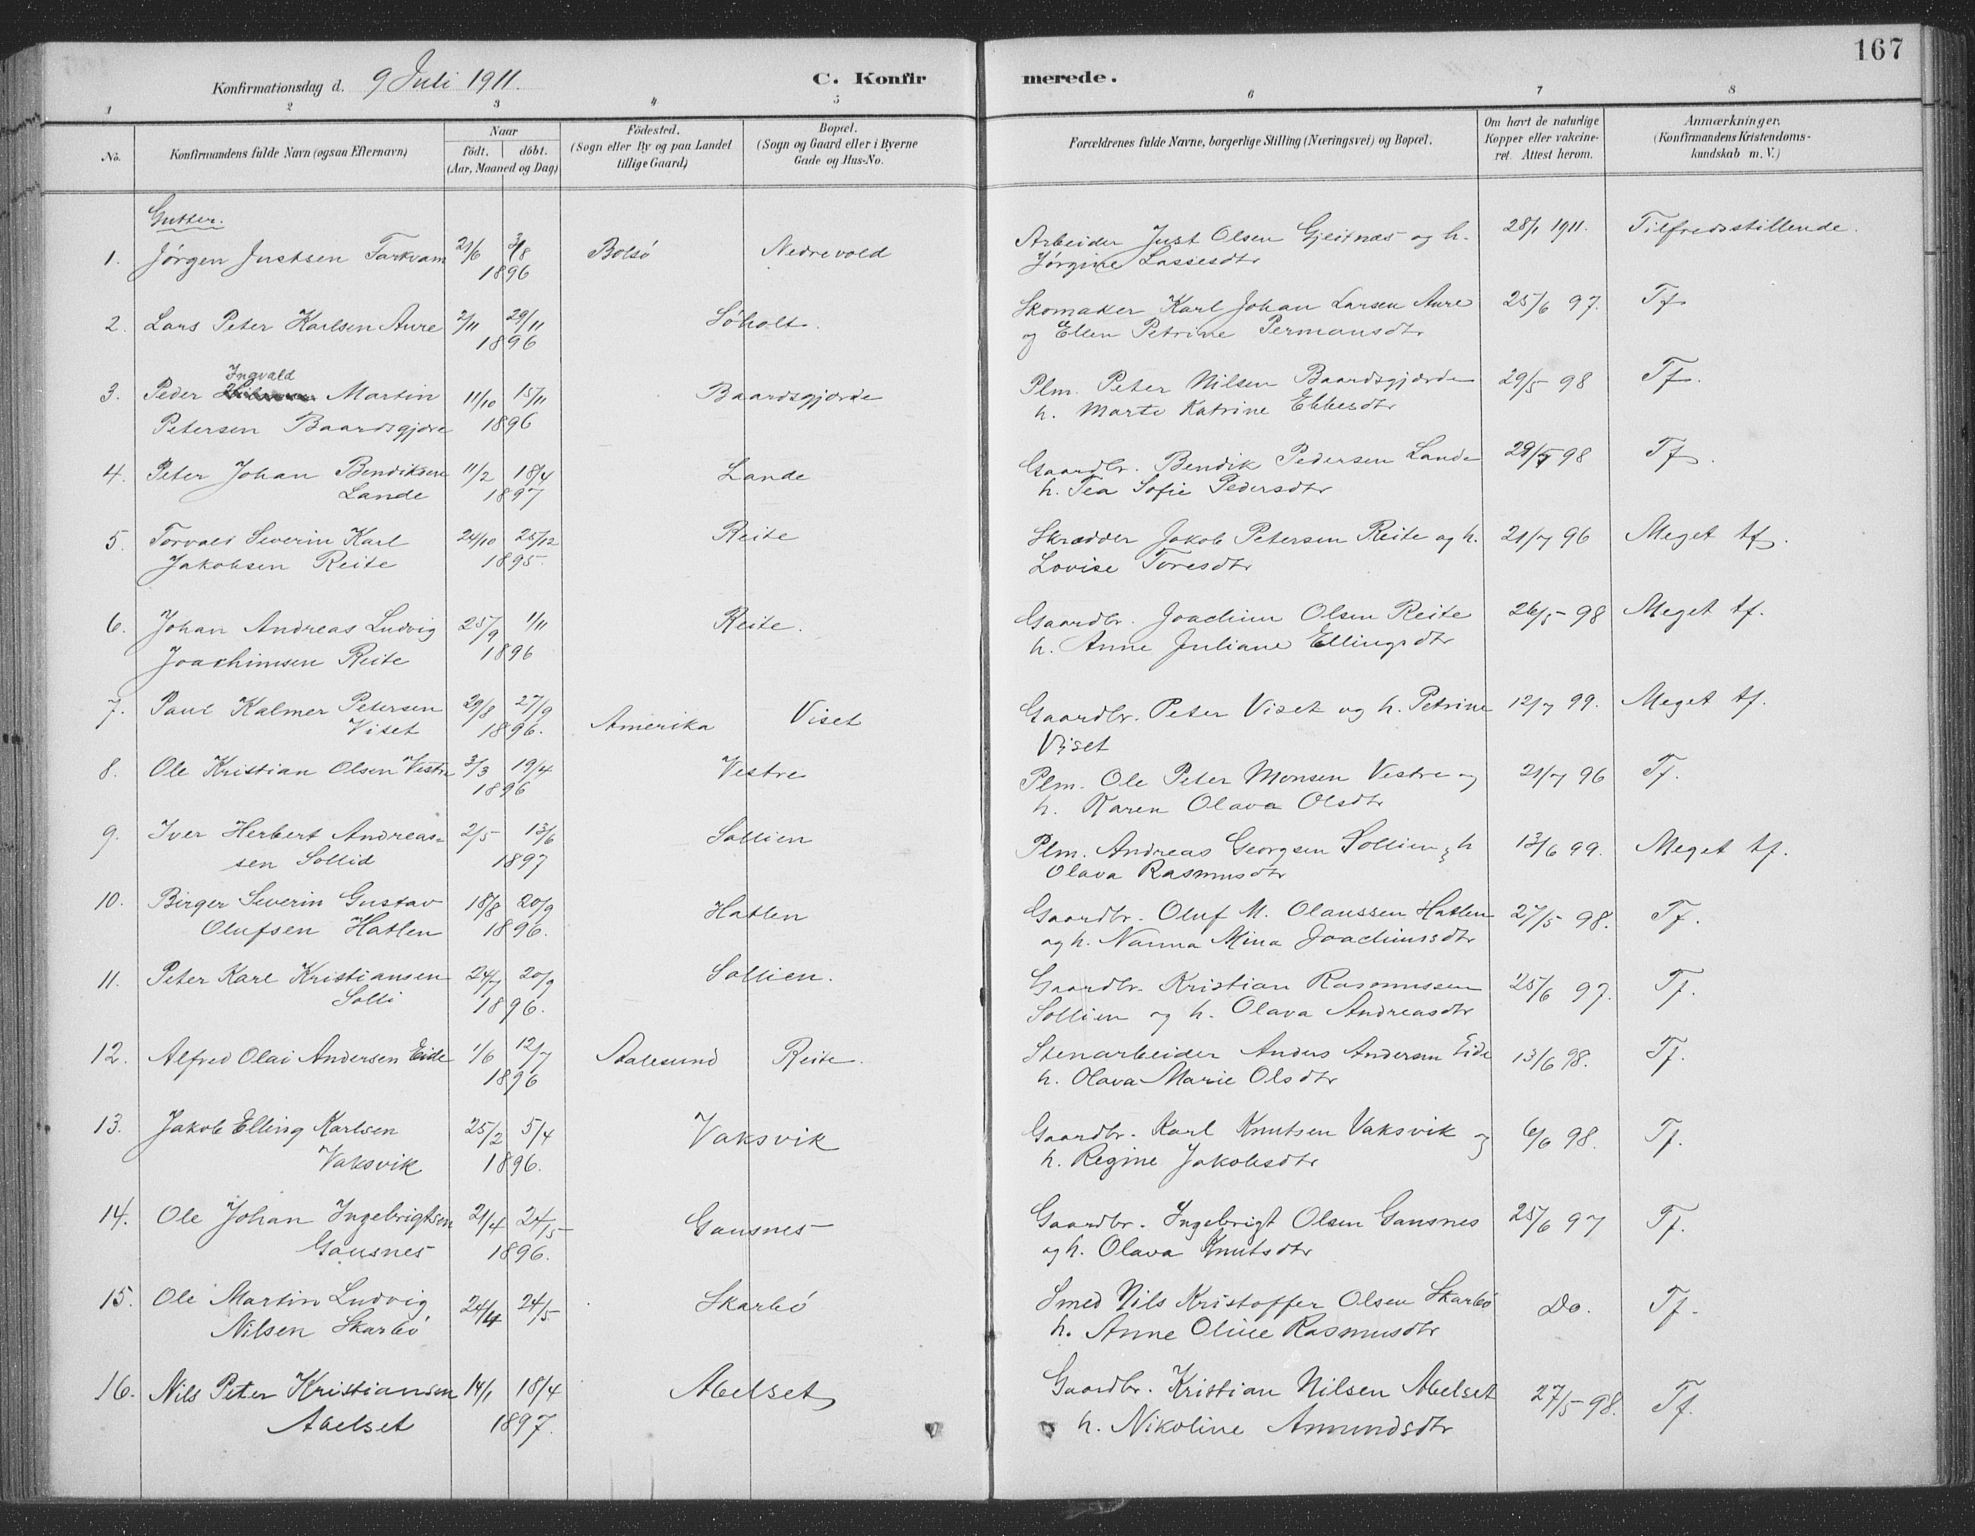 167
Konfirmationsdag d. 9 Juli 1911. C. Konfirmerede.
1 2 3 4 5 6 7 8
No. Konfirmandens fulde Navn (ogsaa Efternavn) Naar födt. döbt. (Aar, Maaned og Dag) Födested. (Sogn eller By og paa Landet tillige Gaard.) Bopæl. (Sogn og Gaard eller i Byerne Gade og Hus-No. Forældrenes fulde Navne, borgerlige Stilling (Næringsvei) og Bopæl. Om havt de naturlige Kopper eller vakcineret. Attest herom. Anmærkninger. (Konfirmandens Kristendomskundskab m. V.)
Gutter.
1. Jørgen Justsen Farkvam 21/6 3/8 Bolsö Nedrevold Arbeider Just Olsen Gjeitnæs og h. 28/1 1911. Tilfredsstillende.
1896 Jørgine Lassesdtr
2. Lars Peter Karlsen Aure 2/11 29/11 Søholt. Skomaker Karl Johan Larsen Aure 25/6 97. Tf
1896 og Ellen Petrine Permansdtr
Ingvald
3. Peder Martin 11/10 15/11 Baardsgjerde Plm. Peter Nilsen Baardsgjerde 29/5 98 Tf.
Petersen Baardsgjøre 1896 h. Marte Katrine Ebbesdtr
4. Peter Johan Bendiksen 11/2 18/4 Lande Gaardbr. Bendik Pedersen Lande 29/5 98 Tf.
Lande 1897 h. Tea Sofie Pedersdtr
5. Torvald Severin Karl 24/10 25/12 Reite Skrædder Jakob Petersen Reite og h. 21/7 96 Meget tf.
Jakobsen Reite 1895. Lovise Toresdtr
6. Johan Andreas Ludvig 25/9 1/11 Reite. Gaardbr. Joachim Olsen Reite 26/5 98 Meget tf.
Joachimsen Reite 1896 h. Anne Juliane Ellingsdtr
7. Paul Kalmer Petersen 29/8 27/9 Amerika Viset Gaardbr. Peter Viset og h. Petrine 12/7 99. Meget tf.
Viset 1896. Viset
8. Ole Kristian Olsen Vestre 3/3 19/4 Vestre Plm. Ole Peter Monsen Vestre og 21/7 96 Tf.
1896 h. Karen Olava Olsdtr
9. Iver Herbert Andreas- 2/5 13/6 Sollien Plm. Andreas Georgsen Sollien & h 13/6 99. Meget tf.
sen Sollid 1897 Olava Rasmusdtr
10. Birger Severin Gustav 18/8 20/9 Hatlen Gaardbr. Oluf M. Olaussen Hatlen 27/5 98. Tf.
Olufsen Hatlen 1896. og h. Nanna Mina Joachimsdtr
11. Peter Karl Kristiansen 24/7 20/9 Sollien. Gaardbr. Kristian Rasmussen 25/6 97. Tf.
Solli 1896. Sollien og h. Olava Andreasdtr
12. Alfred Olai Andersen Eide 1/6 12/7 Aalesund Reite. Stenarbeider Anders Andersen Eide 13/6 98. Tf.
1896 h. Olava Marie Olsdtr
13. Jakob Elling Karlsen 25/2 5/4 Vaksvik Gaardbr. Karl Knutsen Vaksvik og 6/6 98. Tf.
Vaksvik 1896. h. Regine Jakobsdtr
14. Ole Johan Ingebrigtsen 21/4 24/5 Gausnes Gaardbr. Ingebrigt Olsen Gausnes 25/6 97 Tf.
Gausnes 1896. og h. Olava Knutsdtr
15. Ole Martin Ludvig 24/4 24/5 Skarbö Smed Nils Kristoffer Olsen Skarbö Do. Tf.
Nilsen Skarbö h. Anne Oline Rasmusdtr
16. Nils Peter Kristiansen 14/1 18/4 Abelset Gaardbr. Kristian Nilsen Abelset 27/5 98. Tf.
Abelset 1897. h. Nikoline Amundsdtr